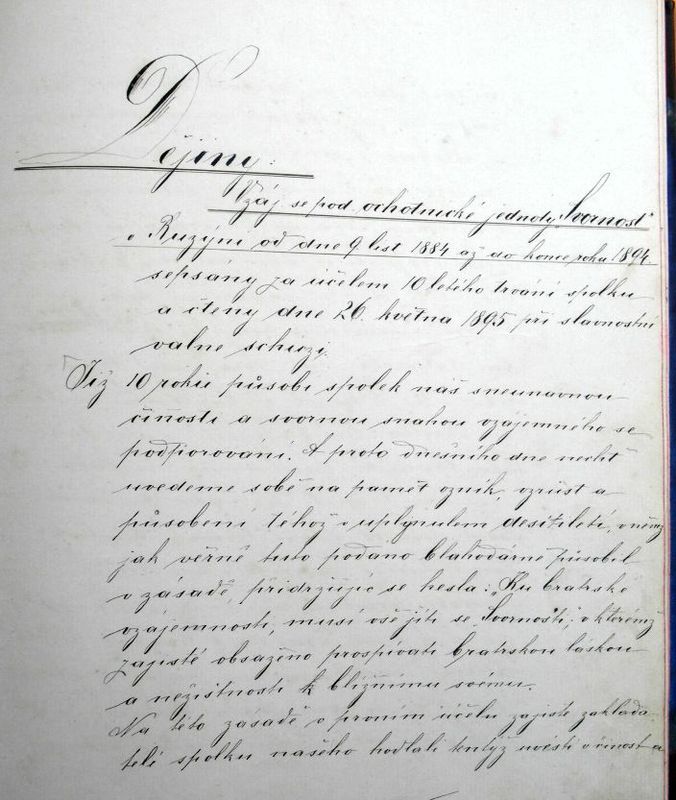 Dějiny:
Vzáj. se pod. ochotnické jednoty „Svornost“
v Ruzýni od dne 9 list 1884 až do konce roku 1894.
sepsány za účelem 10 letého trvání spolku
a čteny dne 26. května 1895 při slavnostní
valné schůzi.
Již 10 roků působí spolek náš s neunavnou
činností a svornou snahou vzájemného se
podporování. A proto dnešního dne nechť
uvedeme sobě na paměť vznik, vzrůst a
působení téhož v uplynulém desítiletí, v němž
jak věrně tuto podáno blahodárně působil
v zásadě, přidržujíc se hesla: „Ku bratrské
vzájemnosti, musí vše jíti se Svorností“, v kterémž
zajisté obsaženo prospívati bratrskou láskou
a nezištností k bližnímu svému.
Na této zásadě v prvním účelu zajisté zaklada-
telé spolku našeho hodlali tentýž uvésti v činnost a